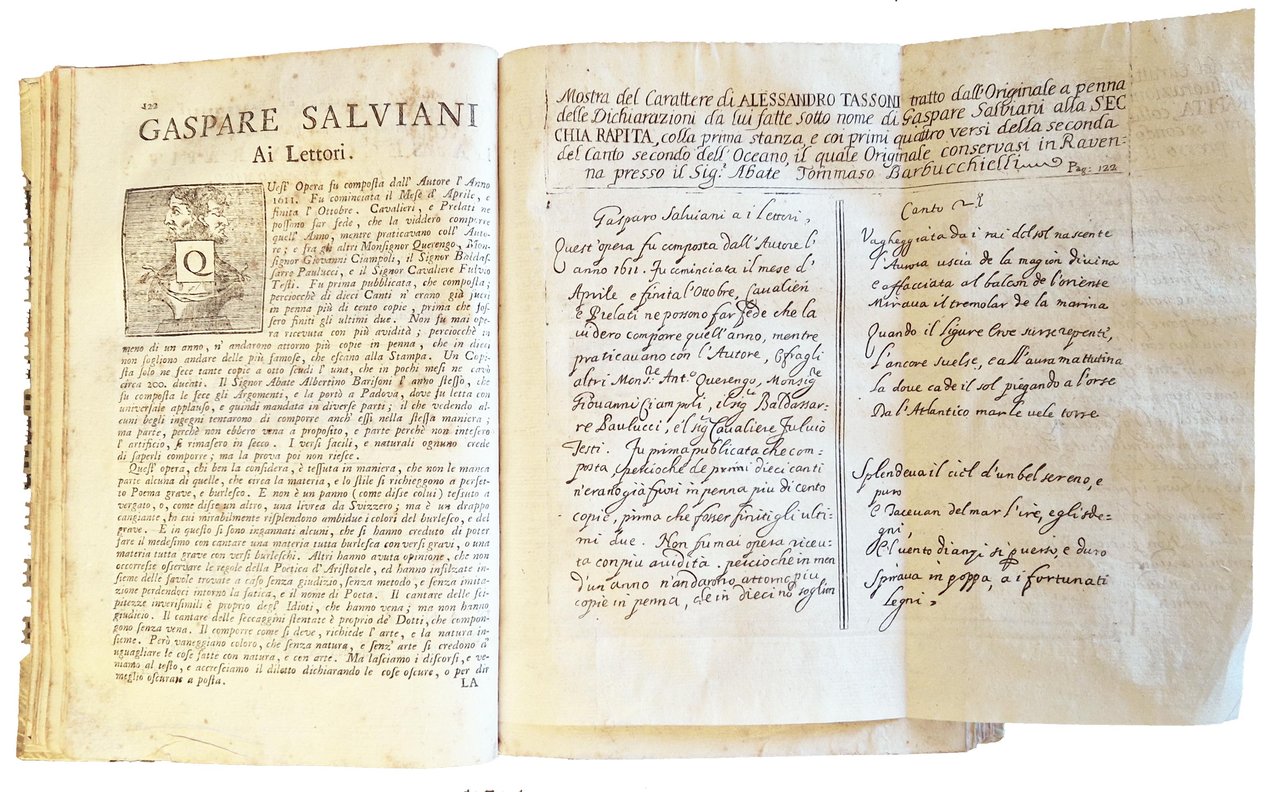 122
GASPARE SALVIANI
Ai Lettori.
Quest' Opera fu composta dall' Autore l' Anno
1611. Fu cominciata il Mese d' Aprile, e
finita l' Ottobre. Cavalieri, e Prelati ne
possono far fede, che la viddero comporre
quell' Anno, mentre praticavano coll' Auto-
re; e fra gli altri Monsignor Querengo, Mon-
signor Giovanni Ciampoli, il Signor Baldas-
sarre Paulucci, e il Signor Cavaliere Fulvio
Testi. Fu prima pubblicata, che composta;
perciocchè di dieci Canti n' erano già fuori
in penna più di cento copie, prima che fos-
sero finiti gli ultimi due. Non fu mai ope-
ra ricevuta con più avidità; perciocchè in
meno di un anno, n' andarono attorno più copie in penna, che in dieci
non sogliono andare delle più famose, che escano alla Stampa. Un Copi-
sta solo ne fece tante copie a otto scudi l' una, che in pochi mesi ne cavò
circa 200. ducati. Il Signor Abate Albertino Barisoni l' anno stesso, che
fu composta le fece gli Argomenti, e la portò a Padova, dove fu letta con
universale applauso, e quindi mandata in diverse parti; il che vedendo al-
cuni begli ingegni tentarono di comporre anch' essi nella stessa maniera;
ma parte, perchè non ebbero vena a proposito, e parte perchè non intesero
l' artificio, si rimasero in secco. I versi facili, e naturali ognuno crede
di saperli comporre; ma la prova poi non riesce.
Quest' opera, chi ben la considera, è tessuta in maniera, che non le manca
parte alcuna di quelle, che circa la materia, e lo stile si richieggono a perfet-
to Poema grave, e burlesco. E non è un panno (come disse colui) tessuto a
vergato, o, come disse un altro, una livrea da Svizzero; ma è un drappo
cangiante, in cui mirabilmente risplendono ambidue i colori del burlesco, e del
grave. E in questo si sono ingannati alcuni, che si hanno creduto di poter
fare il medesimo con cantare una materia tutta burlesca con versi gravi, o una
materia tutta grave con versi burleschi. Altri hanno avuta opinione, che non
occorresse osservare le regole della Poetica d' Aristotele, ed hanno infilzate in-
sieme delle favole trovate a caso senza giudizio, senza metodo, e senza imita-
zione perdendoci intorno la fatica, e il nome di Poeta. Il cantare delle sci-
pitezze inverisimili è proprio degl' Idioti, che hanno vena; ma non hanno
giudicio. Il cantare delle seccaggini stentate è proprio de' Dotti, che compon-
gono senza vena. Il comporre come si deve, richiede l' arte, e la natura in-
sieme. Però vaneggiano coloro, che senza natura, e senz' arte si credono d'
uguagliare le cose fatte con natura, e con arte. Ma lasciamo i discorsi, e ve-
niamo al testo, e accresciamo il diletto dichiarando le cose oscure, o per dir
meglio oscurate a posta.
LA
Mostra del Carattere di ALESSANDRO TASSONI tratto dall'Originale a penna
delle Dichiarazioni da lui fatte sotto nome di Gaspare Salviani alla SEC
CHIA RAPITA, colla prima stanza, e coi primi quattro versi della seconda
del Canto secondo dell'Oceano, il quale Originale conservasi in Raven-
na presso il Sig.r Abate Tommaso Barbucchielli
Pag: 122
Gasparo Salviani a i lettori,
Quest'opera fu composta dall'Autore l'
anno 1611. Fu cominciata il mese d'
Aprile e finita l'Ottobre. Cavalieri
e Prelati ne possono far fede che la
uidero comporre quell'anno, mentre
praticauano con l'Autore, e fra gli
altri Mons.re Ant.o Querengo, Monsig.re
Giouanni Ciampoli, il sig.r Baldassar-
re Paulucci, e'l sig.r Caualiere Fuluio
Testi. Fu prima publicata che com-
posta, percioche de primi dieci canti
n'erano già fuori in penna piu di cento
copie, prima che fosser finiti gli ulti-
mi due. Non fu mai opera riceu-
ta con piu auidità. percioche in men
d'un anno n'andarono attorno piu
copie in penna, che in dieci no soglion
Canto 2.o
Vagheggiata da i rai del sol nascente
l'Aurora uscia de la magion diuina
e affacciata al balcon de l'oriente
Miraua il tremolar de la marina
Quando il ligure Eroe surse repente,
l'ancore suelse, e a l'aura mattutina
la doue cade il sol piegando a l'orse
Da l'Atlantico mar le uele torse
Splendeua il ciel d'un bel sereno, e
puro
E taceuan del mar l'ire, e gli sde-
gni,
e'l uento dianzi si peruerso, e duro
Spiraua in poppa, a i fortunati
legni,